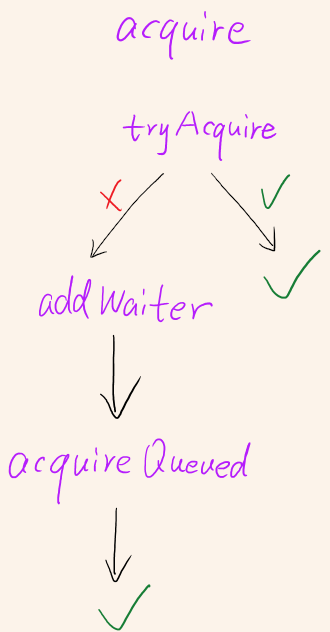 acquire
tryAcquire
addWaiter
acquireQueued